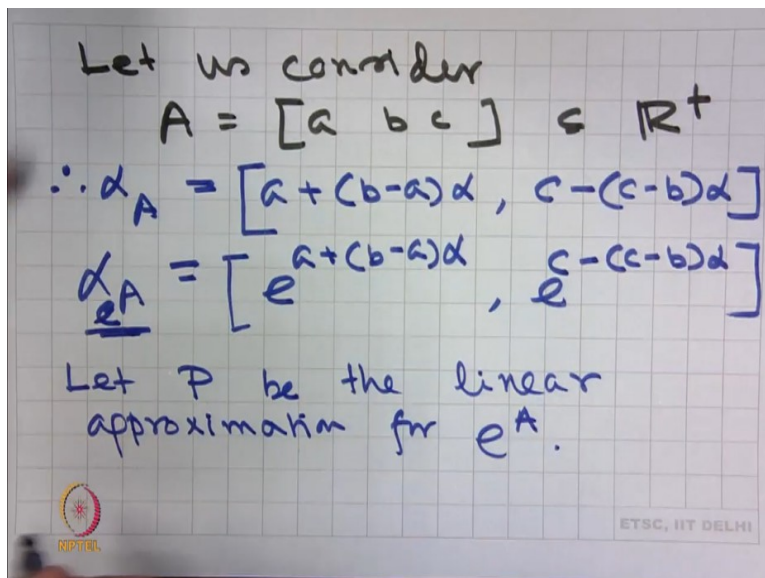 Let us consider
A = [a b c] ⊂ R⁺
∴ α_A = [a + (b-a)α, c - (c-b)α]
α_{e^A} = [e^{a+(b-a)α}, e^{c-(c-b)α}]
Let P be the linear
approximation for e^A.
NPTEL
ETSC, IIT DELHI